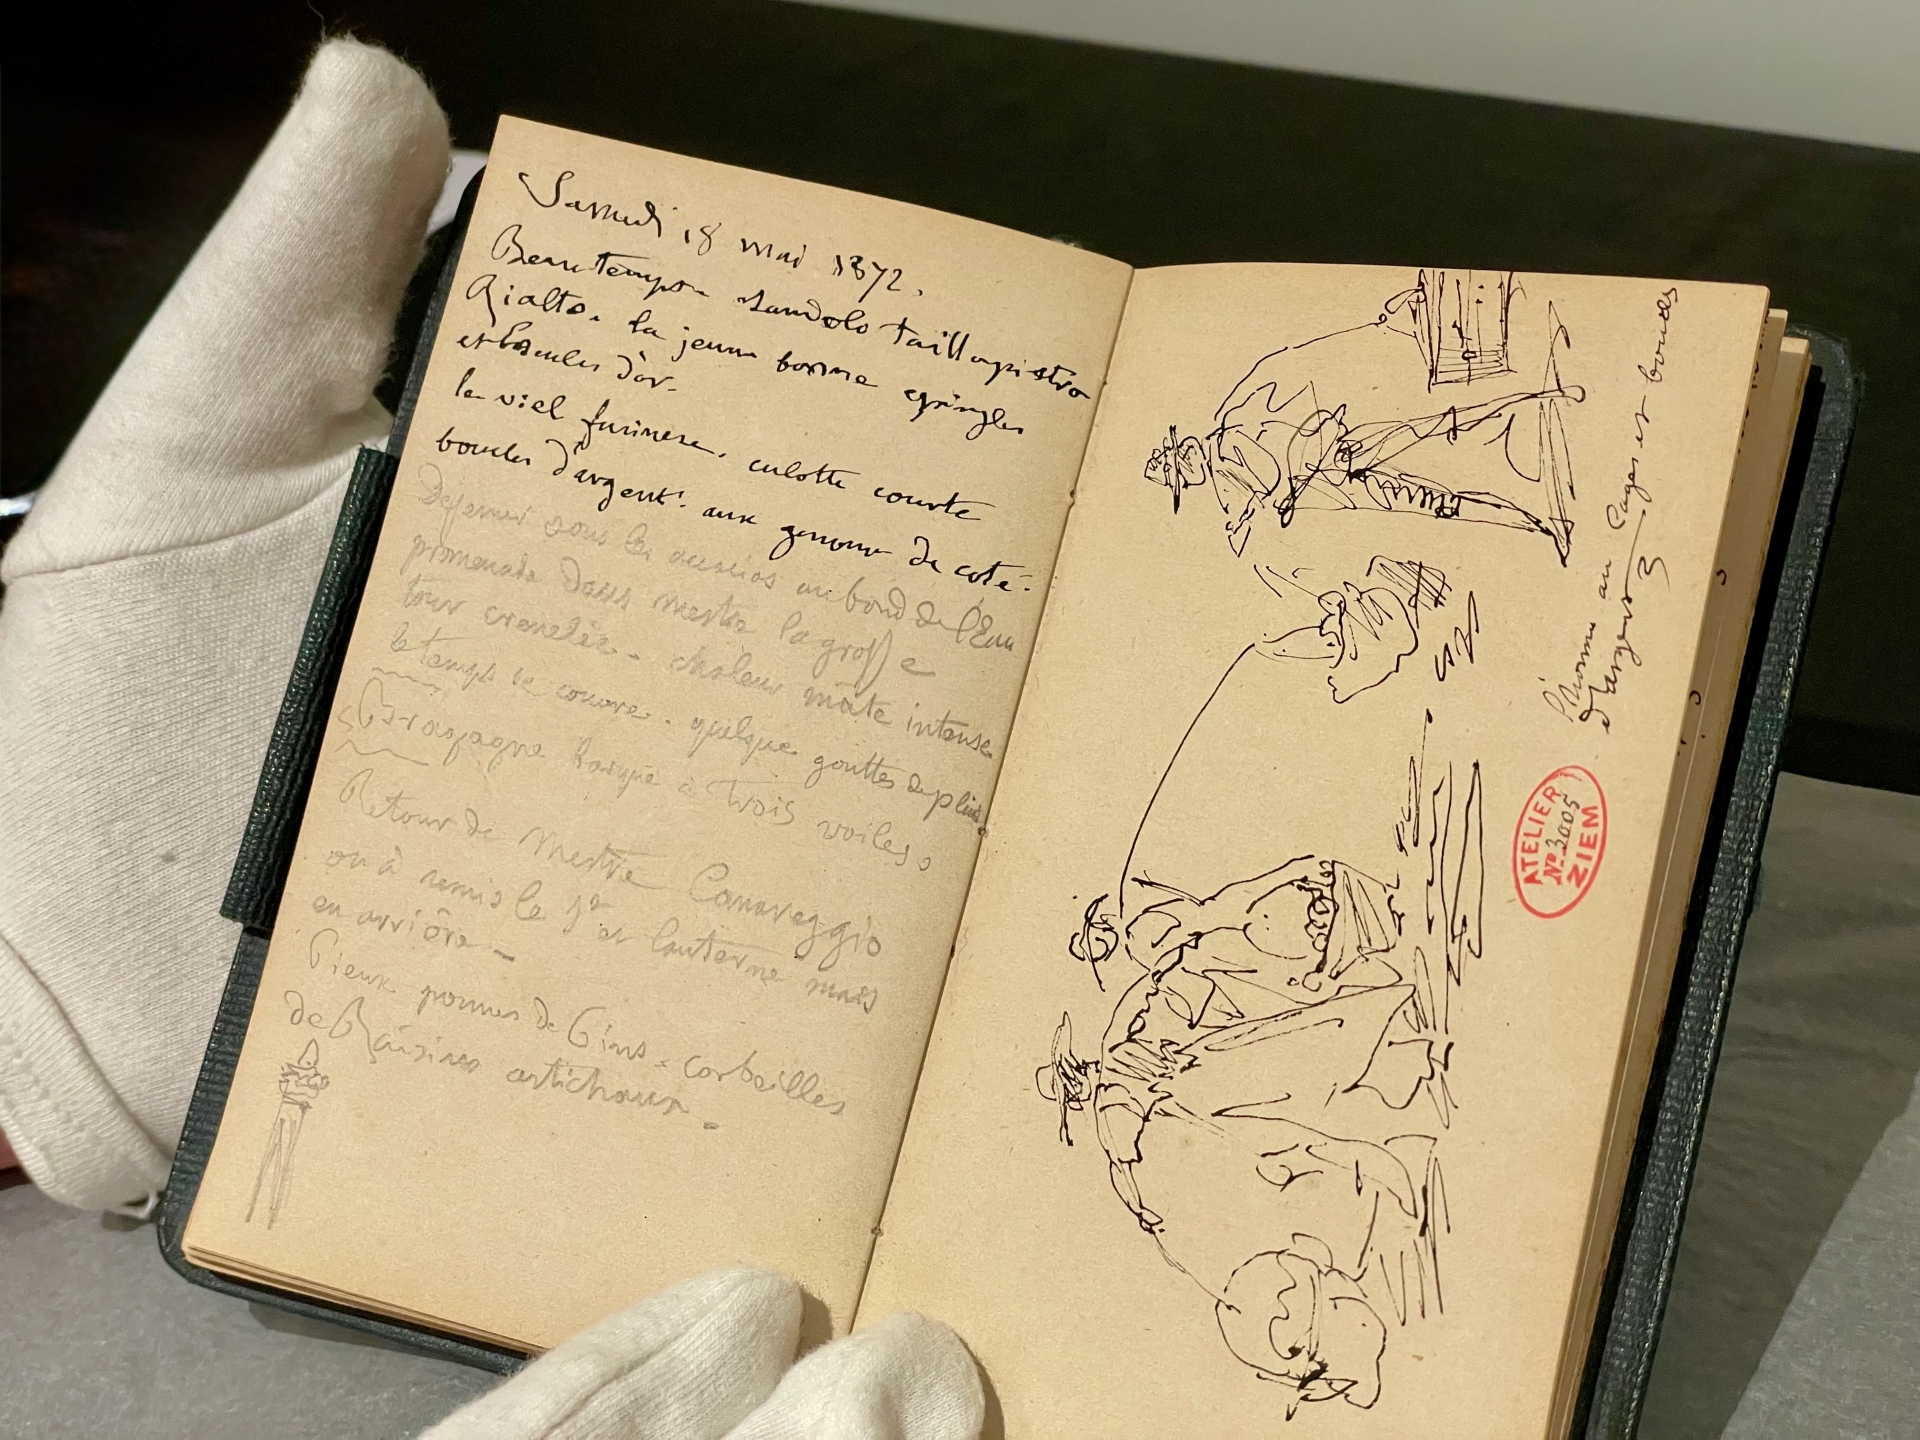 Samedi 18 mai 1872.
Beau temps - sandolo
Rialto. la jeune bonne epingles
et boucles d'or.
le viel farinere, culotte courte
boucles d'argent: aux genoux de coté.
Dejeuner sous les accacios au bord de l'Eau
promenade dans mestre la grosse
tour crenelée - chaleur mate intense
le temps se couvre. quelque gouttes de pluie
Bragagne barque à trois voiles.
Retour de Mestre Canareggio
on à remis le et lanterne mais
en arrière -
Pieux pommes de Pins - corbeilles
de Raisins artichaux -
l'homme au Cages et boucles
d'argent
ATELIER
No. 3005
ZIEM